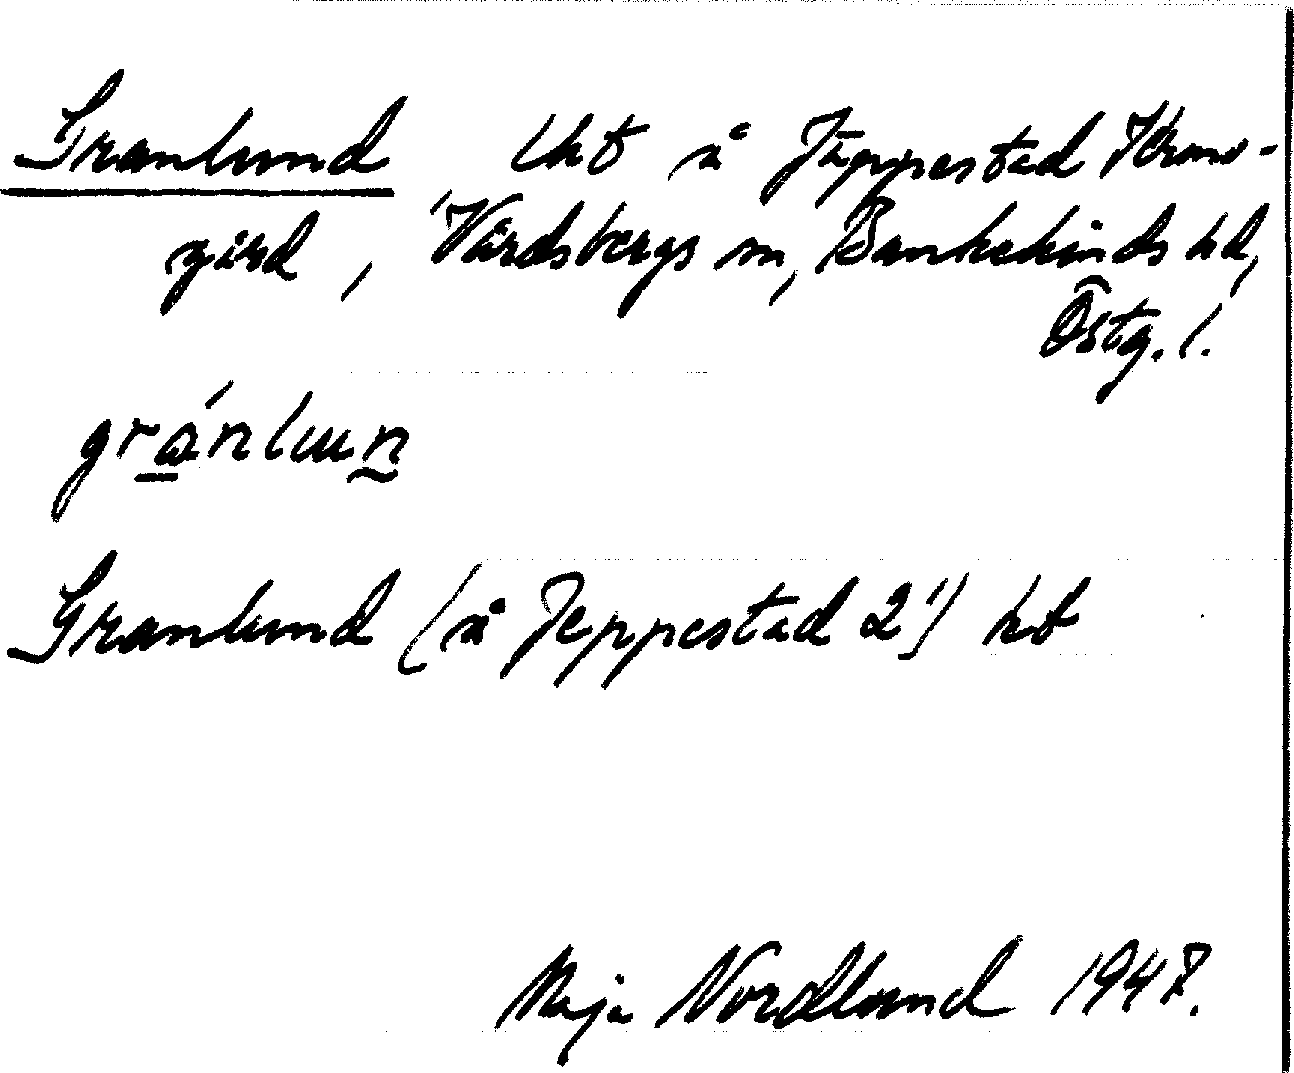 Granlund lht å Jäppestad Krono-
gård, Vårdsbergs sn, Bankekinds hd,
Östg. l.
gránlun
Granlund (å Jeppestad 2¹) hb
Maja Nordlund 1947.